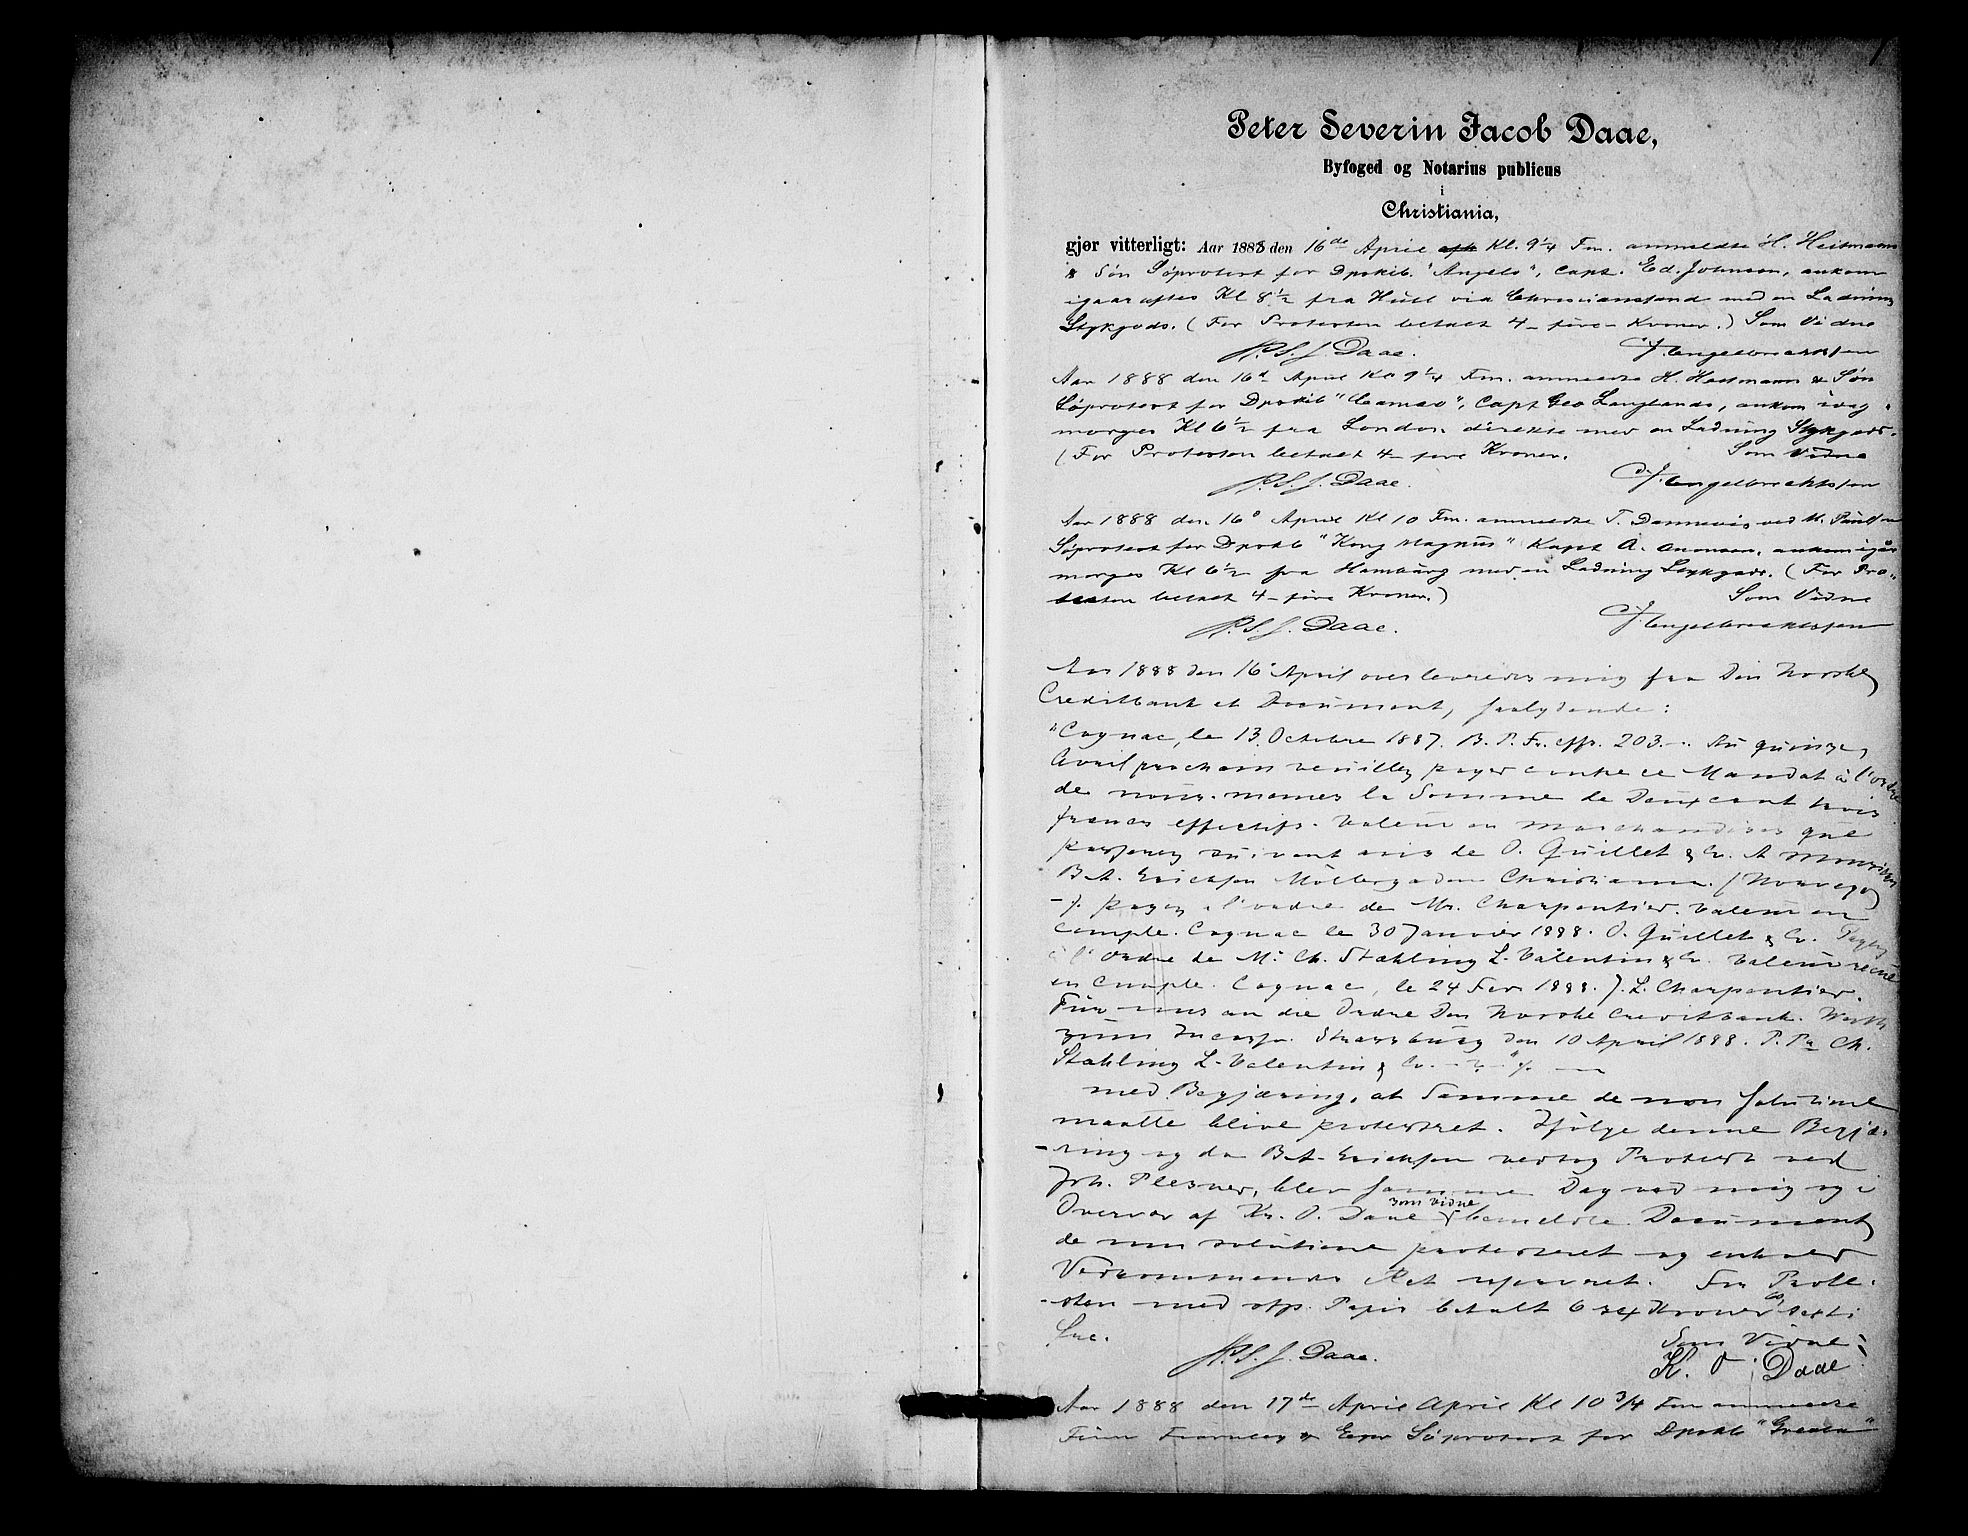 1
Peter Severin Jacob Daae,
Byfoged og Notarius publicus
i
Christiania,
gjør vitterligt: Aar 1888 den 16de April Kl. 9 1/4 Fm. anmeldte H. Heitmann
& Søn Søprotest for Dpskib. "Angelo", Capt. Ed. Johnson, ankom
igaaraftes Kl 8 1/2 fra Hull via Christiansand med en Ladning
Stykgods. (For Protesten betalt 4 - fire - Kroner.) Som Vidne
P.S.J. Daae. J. Engelbrecktssen
Aar 1888 den 16d April Kl 9 1/4 Fm. anmeldte H. Heitmann & Søn
Søprotest for Dpskib "Cameo", Capt Geo Langlands, ankom idag
morges Kl 6 1/2 fra London direkte med en Ladning Stykgods.
(For Protesten betalt 4 - fire Kroner. Som Vidne
P.S.J. Daae. J. Engelbrecktssen
Aar 1888 den 16d April Kl 10 Fm. anmeldte T. Dannevig ved M. Paulsen
Søprotest for Dpskb "Kong Magnus" Kapt A. ankom igaar
morges Kl 6 1/2 fra Hamburg med en Ladning Stykgods. (For Pro-
testen betalt 4 - fire Kroner.) Som Vidne
P.S.J. Daae. J. Engelbrecktssen
Aar 1888 den 16' April overleveredes mig fra Den Norske
Creditbank et Document, saalydende:
"Cognac, le 13 Octobre 1887. B. P. Fr. eff. 203.-. Au quinze
Avril prochain veuillez payer contre ce Mandat à l'ordre
de nous-memes la Somme de Deux cent trois
francs effectifs. Valeur en marchandises que
passerez suivant avis de O. Guillet & Co. A Monsieur
B. A. Erichsen Möllergaden Christiania. (Norvege)
-/. Payez a l'ordre de Mr. Charpentier. Valeur en
compte. Cognac le 30 Janvier 1888. O. Guillet & Co. Payez
à l'ordre de Mr. Ch. Stæhling L. Valentin & Co. Valeur recue
en Compte. Cognac, le 24 Fev. 1888. J. L. Charpentier.
Für uns an die Ordre Den Norske Creditbank. Werth
zum Incasso. Strassburg den 10 April 1888. P. Pa Ch.
Stæhling L. Valentin & Co.
med Begjæring, at Samme de non solutione
maatte blive protesteret. Ifølge denne Begjæ-
-ring og da B. A. Erichsen vedtog Protest ved
Joh. Plesner, blev samme Dag ved mig og i
Overvær af Kr. O. Daae som Vidne bemeldte Document
de non solutione protesteret og enhver
Vedkommende Ret reserveret. For Prote-
-sten med stp. Papir betalt 6 sex Kroner & sexti
Øre. Som Vidne:
P.S.J. Daae. K. O. Daae
Aar 1888 den 17de April April Kl 10 3/4 Fm anmeldte
Fearnley & Eger Søprotest for Dpskb "Grecian"